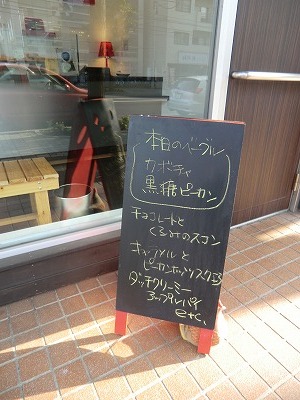 本日のベーグル
カボチャ
黒糖ピーカン
チョコレートと
くるみのスコン
キャラメルと
ピーカンナッツスクエア
ダッチクリーミー
アップルパイ
etc.